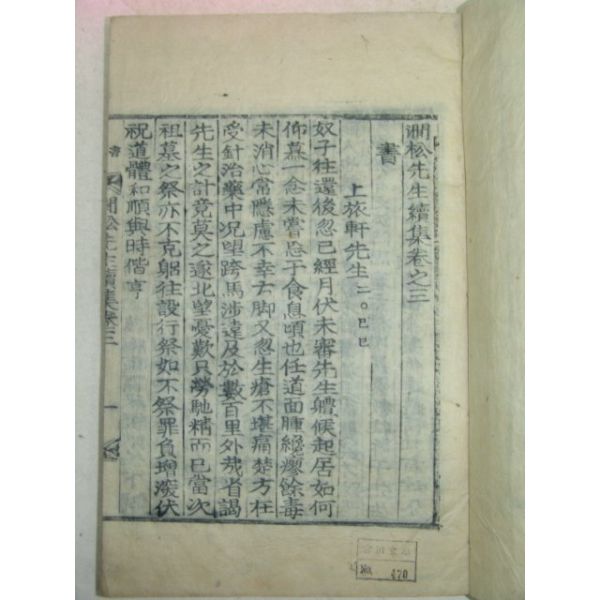 澗松先生續集卷之三
書
上旅軒先生二〇己巳
奴子往還後忽已經月伏未審先生軆候起居如何
仰慕一念未嘗怠于食息頃也任道面腫纔瘳餘毒
未消心常應慮不幸右脚又忽生瘡不堪痛楚方在
受針治藥中况望跨馬涉遠及於數百里外哉省謁
先生之計竟莫之遂北望憂歎只勞馳精而已當次
祖墓之祭亦不克躬往設行祭如不祭罪負增深伏
祝道體和順與時偕亨
書 澗松先生續集卷三 一
420